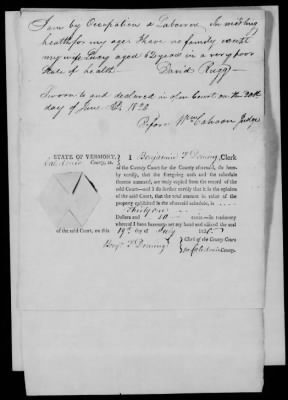 I am by Occupation a Labourer. In middling
health for my age I have no family except
my wife Lucy aged 62 years in a very poor
State of health David Rugg
Sworn to and declared in open Court on the 20th
day of June AD. 1820
Before Wm Cahoon Judge
STATE OF VERMONT,
Caledonia County, ss.
I Benjamin F Deming, Clerk
of the County Court for the County aforesaid, do here-
by certify, that the foregoing oath and the schedule
thereto annexed, are truly copied from the record of the
said Court—and I do further certify that it is the opinion
of the said Court, that the total amount in value of the
property exhibited in the aforesaid schedule, is
Thirty one
Dollars and 50 cents—In testimony
whereof I have hereunto set my hand and affixed the seal
of the said Court, on this 19th day of July 1820.
Benj F Deming Clerk of the County Court
for Caledonia County.